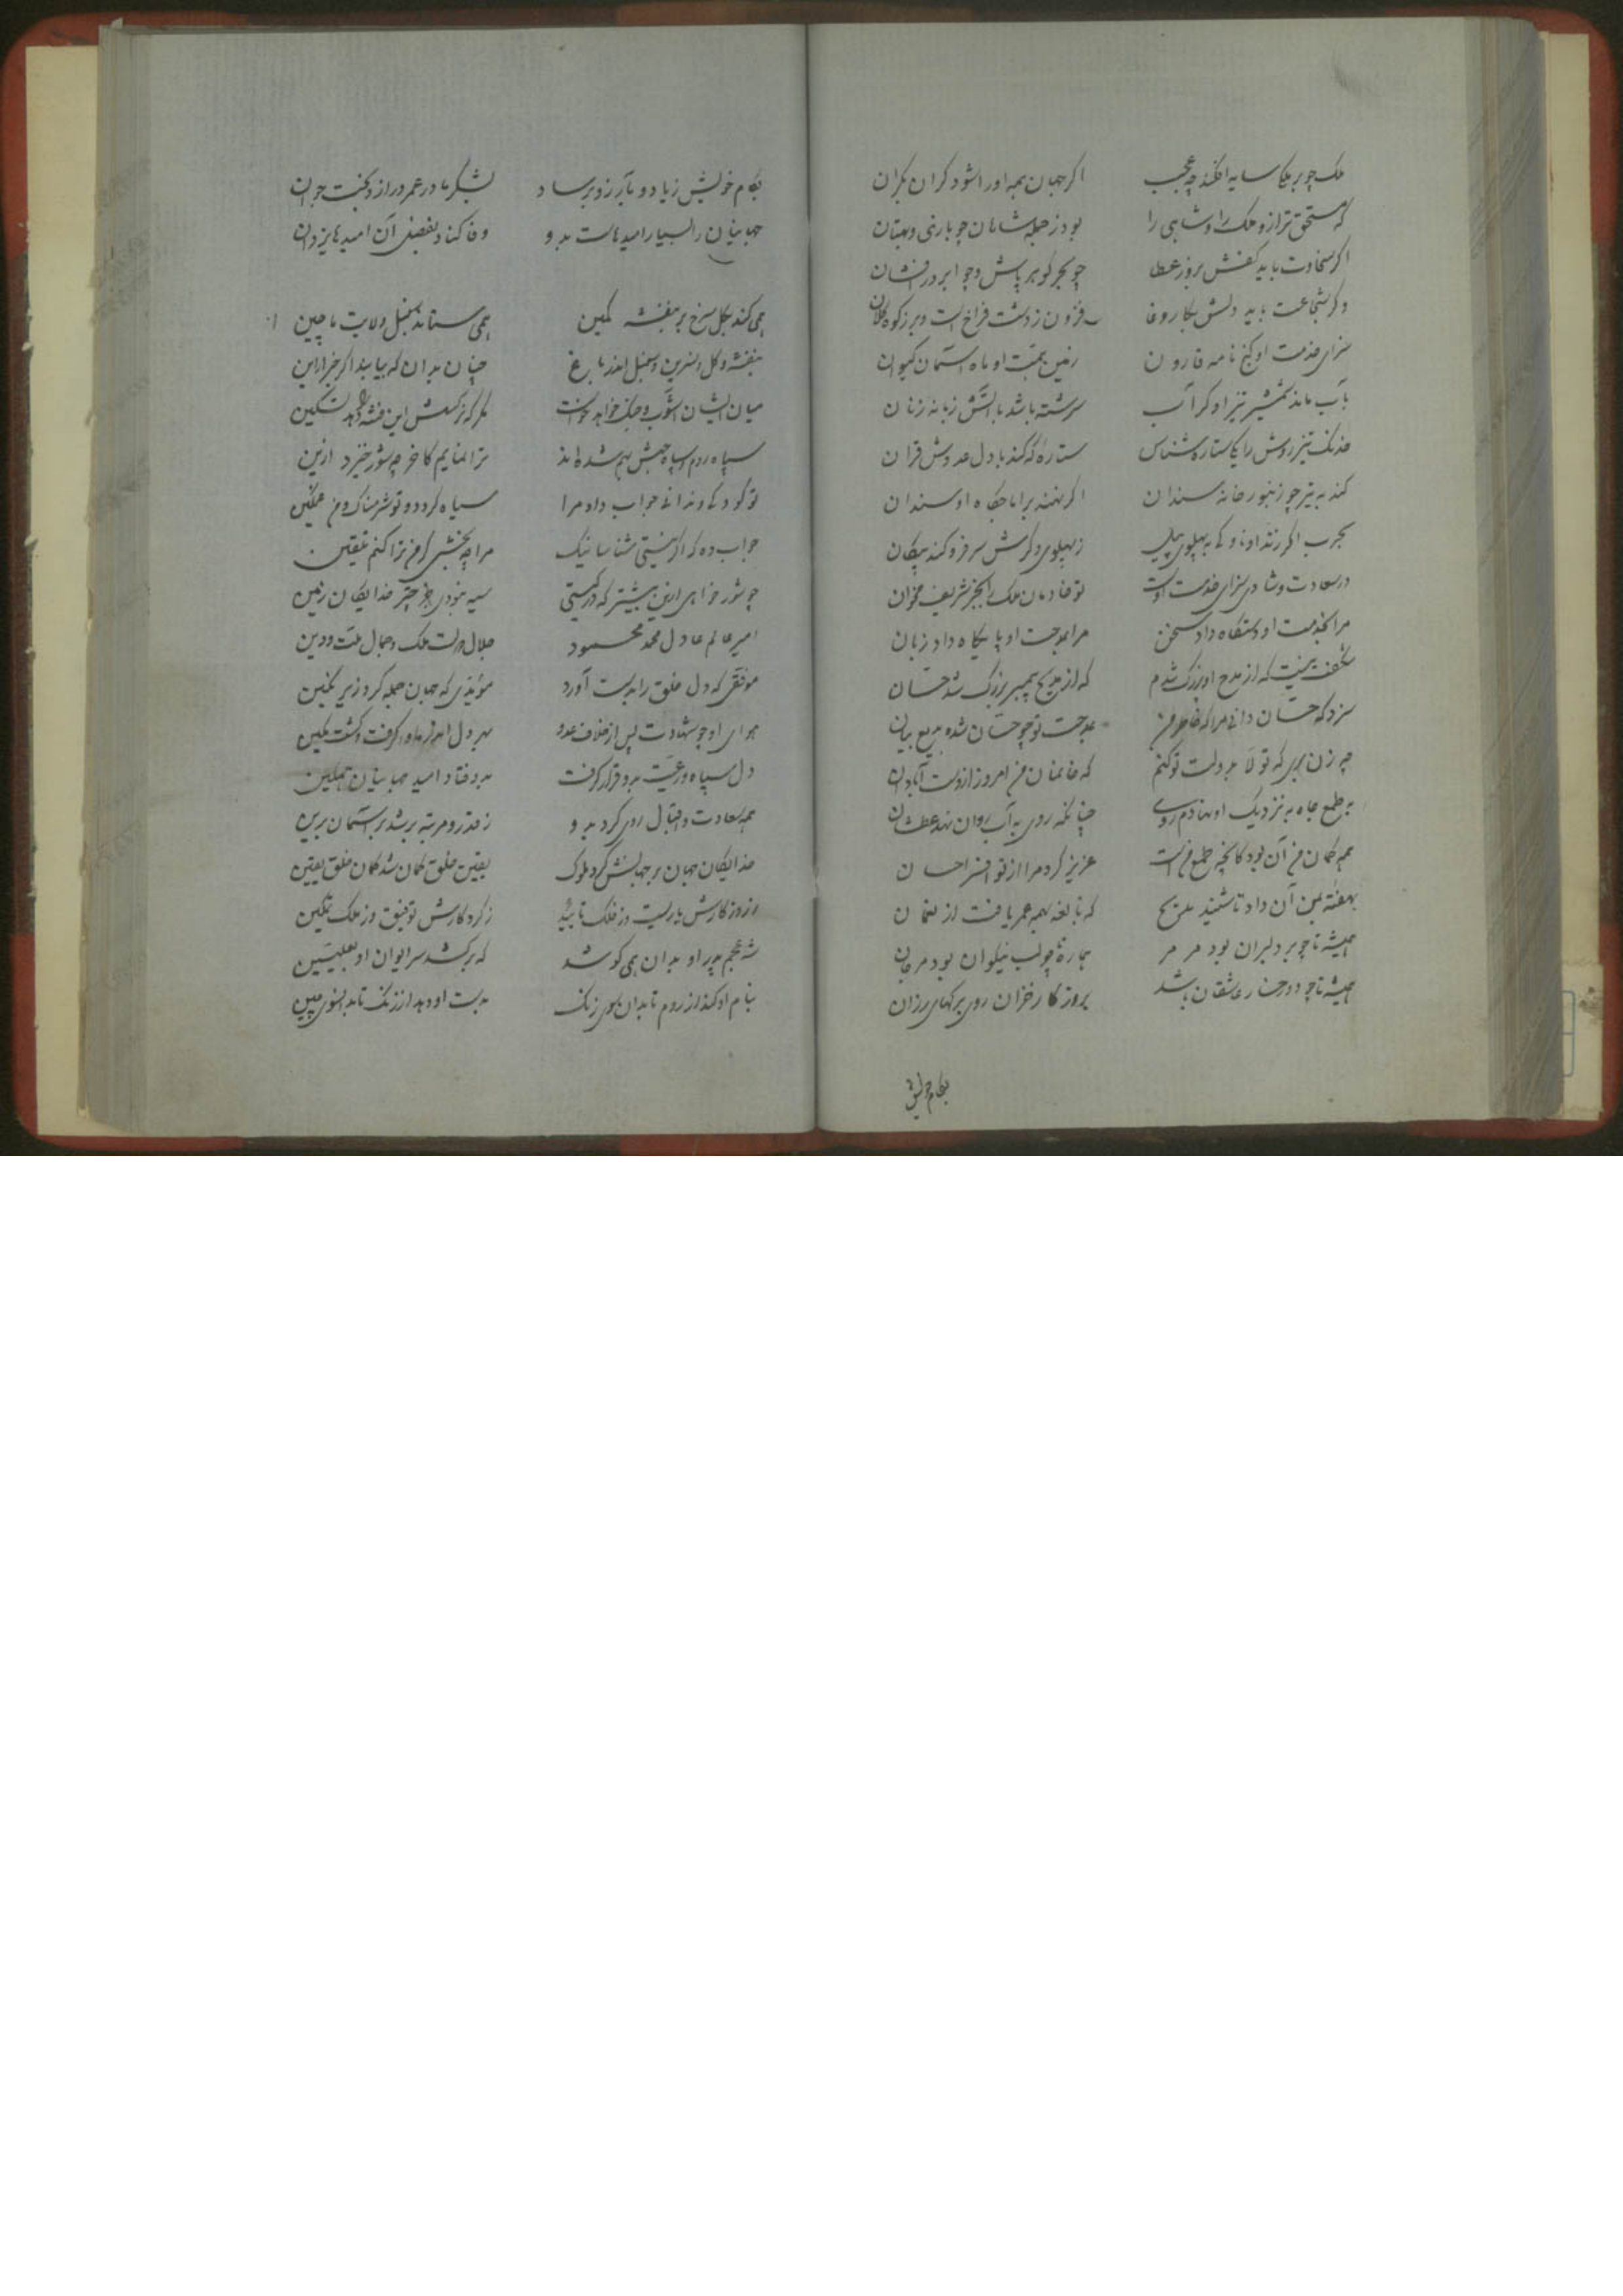 ملک چو بر ملکا سایه افکند چه عجب
اگر جهان همه او را شود کران بکران
که مستحق تر ازو ملک را و شاهی را
بود ز جمله شاهان چو یارنی و بهتان
اگر سخاوت باید کفش بروز عطا
چو بحر گوهر پاش و چو ابر درفشان
وگر شجاعت باید دلش بگاه وغا
فزون ز دشت فراخ است و بر ز کوه کلان
سزای خدمت او گنج نامه قارون
زمین همت او ماه آسمان کیوان
بآب ماند شمشیر تیز او گر آب
سرشته باشد با آتش زبانه زنان
خدنگ تیزروش را یکی ستاره شناس
ستاره که کند با دل عدوش قران
کند به تیر چو زنبور خانه سندان
اگر نهند بر آماجگاه او سندان
بحرب اگر زند او ناوکی به پهلوی پیل
ز پهلوی دگرش سر فرو کند پیکان
در سعادت و شادی سزای خدمت اوست
تو خادمان ملک را بجز شریف مخوان
مرا بخدمت او دستگاه داد سخن
مرا بمدحت او پایگاه داد زبان
شگفت نیست که از مدح او بزرگ شدم
که از مدیح پیمبر بزرگ شد حسان
سزد که حسان دانی مرا که خاطر من
بمدحت تو چو حسان شده بدیع بیان
چه زن بری که تولا بدولت تو کنم
که خانمان من امروز ازوست آبادان
بر طمع جاه به نزدیک او نهادم روی
چنانکه روی به آب روان نهد عطشان
همه گمان من آن بود کانچه طمع من است
عزیز کرد مرا از تو افسر احسان
بهفته بمن آن داد تا شنید مدیح
که نابغه بهمه عمر یافت از نعمان
همیشه تا چو بر دلبران بود مرمر
همیشه تا چو لب نیکوان بود مرجان
همیشه تا چو دو رخسار عاشقان باشد
بروزگار خزان روی برگهای رزان
بکام خویش
بکام خویش زیاد و بآرزو برساد
بشکر باد در عمر دراز و بخت جوان
جهانیان را بسیار امیدهاست بدو
وفا کناد بفضل آن امیدها یزدان
همی کند بگل سرخ بر بنفشه کمین
همی ستاند سنبل ولایت ماچین
بنفشه و گل و نسرین و سنبل اندر باغ
چنان بدان که بیابند اگر خبر ازین
میان ایشان آشوب و جنگ خواهد خواست
مگر که نرگسش این فتنه را دهد تسکین
سپاه روم و سپاه حبش بهم شده اند
ترا نمایم کاخر چه شور خیزد ازین
تو کودکی و ندانی جواب داد مرا
سیاه گردد و تو شرمناک و من غمگین
جواب ده که اگر نیستی شناسا نیک
مرا چه بخشی گر من ترا کنم تلقین
چو شور خواهی ازین بیشتر که در گیتی
سیه نبودی جز چتر خدایگان زمین
امیر عالم عادل محمد محمود
جلال دولت ملک و جمال ملت و دین
موفقی که دل خلق را بدست آورد
مؤیدی که جهان جمله کرد زیر نگین
هوای او چو شهادت پس از خلاف عدو
بهر دل اندر ماوا گرفت و گشت مکین
دل سپاه و رعیت بدو قرار گرفت
بدو فتاد امید جهانیان همگین
همه سعادت و اقبال روی کرد بدو
ز قدر و مرتبه بر شد بر آسمان برین
خدایگان جهان بر جهانش کرد ملوک
یقین خلق گمان شد گمان خلق یقین
ز روزگارش یاریست وز فلک تایید
ز کردگارش توفیق وز ملک تمکین
شه عجم پدر او بدان همی کوشد
که بر کشد سر ایوان او بعلیین
بنام او کند از روم تا بدان سوی زنگ
بدست او دهد از زنگ تا بدانسوی چین